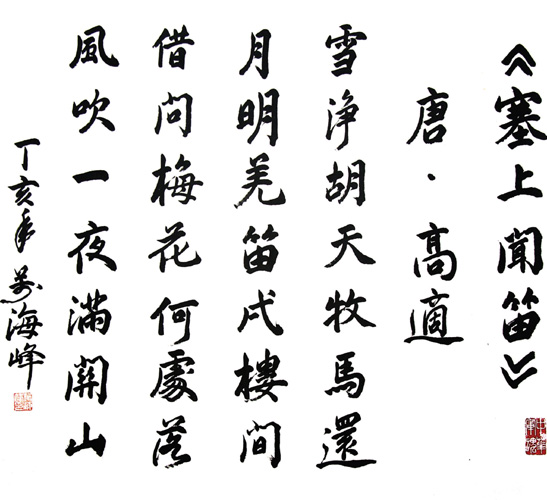 《塞上聞笛》
唐·高適
雪淨胡天牧馬還
月明羌笛戍樓間
借問梅花何處落
風吹一夜滿關山
丁亥年 萬海峰